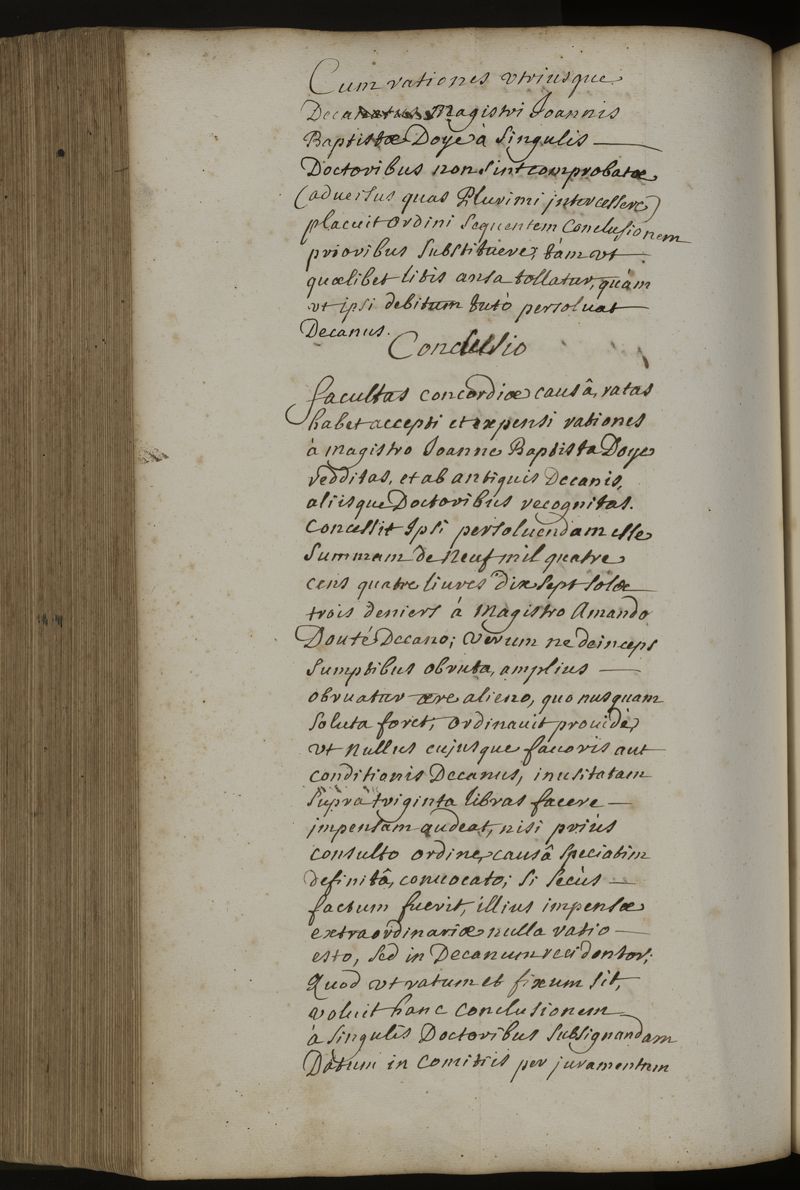 Cum rationes vtriusque
Decanatus Magistri Joannis
Baptistæ Doye à Singulis
Doctoribus non sint comprobatæ
(aduersus quas Plurimi jntercessere)
placuit ordini Sequentem Conclusionem
prioribus Substituere; tàm vt
quælibet litis ansa tollatur, quàm
vt ipsi debitum tutò persoluat
Decanus.
Conclusio
facultas concordiæ causâ, ratas
habet accepti et expensi rationes
à magistro Joanne Baptista Doye
redditas, et ab antiquis Decanis,
aliisque Doctoribus recognitas.
Concessit Ipsi persoluendam esse
Summam de Neuf mil quatre
cens quatre liures dix sept sols
trois deniers à Magistro Amando
Douté Decano; Verum ne deinceps
Sumptibus obruta, amplius
obruatur ære alieno, quo nusquam
Soluta foret, ordinauit prouidè,
vt Nullus cujusque fauoris aut
conditionis Decanus, inusitatam
Supra triginta libras facere
jmpensam audeat, nisi priùs
consulto ordine, causâ speciatim
definitâ, conuocato; Si Secùs
factum fuerit, illius impensæ
extraordinariæ nulla ratio
esto, Sed in Decanum recidentor;
Quod vt ratum et fixum sit,
voluit hanc Conclusionem
à Singulis Doctoribus Subsignandam
Datum in Comitiis per juramentum